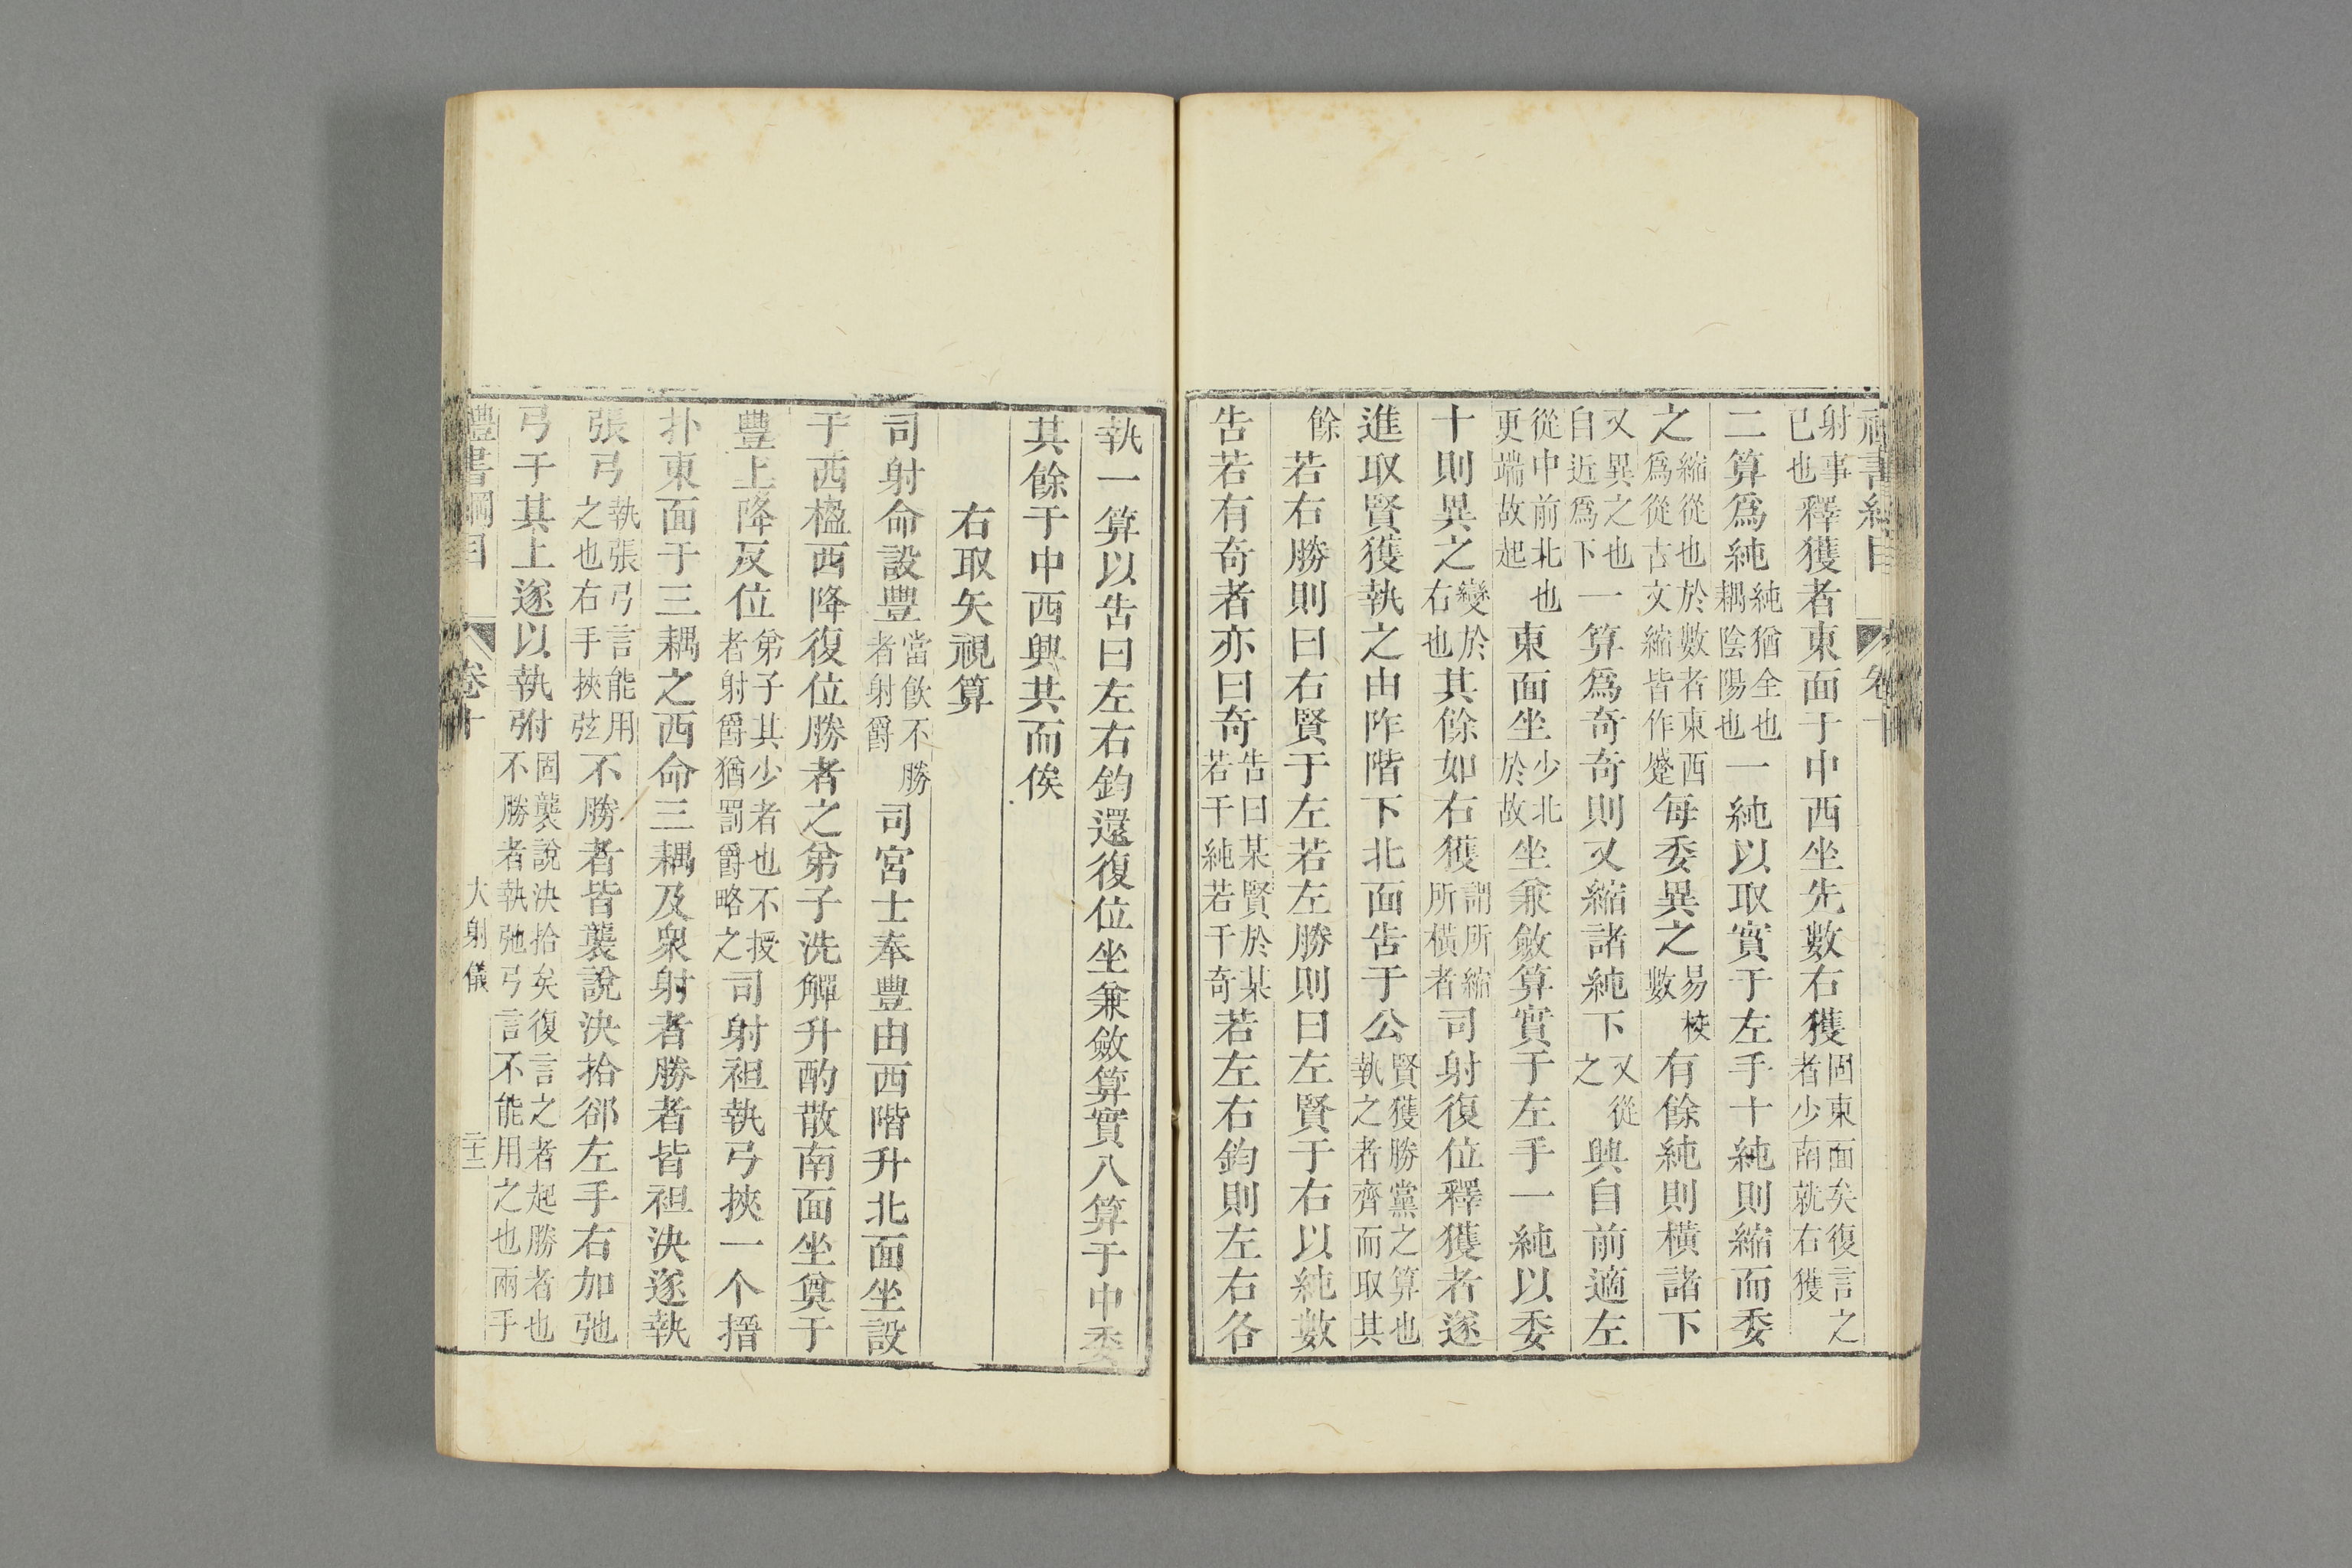 射事已也釋獲者東面于中西坐先數右獲固東面矣復言之者少南就右獲
二算爲純純猶全也耦陰陽也一純以取實于左手十純則縮而委
之縮從也於數者東西爲從古文縮皆作蹙每委異之易校數有餘純則橫諸下
又異之也自近爲下一算爲奇奇則又縮諸純下又從之興自前適左
從中前北也更端故起東面坐少北於故坐兼斂算實于左手一純以委
十則異之變於右也其餘如右獲謂所縮所橫者司射復位釋獲者遂
進取賢獲執之由阼階下北面告于公賢獲勝黨之算也執之者齊而取其
餘若右勝則曰右賢于左若左勝則曰左賢于右以純數
告若有奇者亦曰奇告曰某賢於某若干純若干奇若左右鈞則左右各
執一算以告曰左右鈞還復位坐兼斂算實八算于中委
其餘于中西興共而俟
右取矢視算
司射命設豐當飲不勝者射爵司宮士奉豐由西階升北面坐設
于西楹西降復位勝者之弟子洗觶升酌散南面坐奠于
豐上降反位弟子其少者也不授者射爵猶罰爵略之司射袒執弓挾一个搢
扑東面于三耦之西命三耦及衆射者勝者皆袒決遂執
張弓執張弓言能用之也右手挾弦不勝者皆襲說決拾郤左手右加弛
弓于其上遂以執弣固襲說決拾矣復言之者起勝者也不勝者執弛弓言不能用之也兩手
禮書綱目 卷十 大射儀